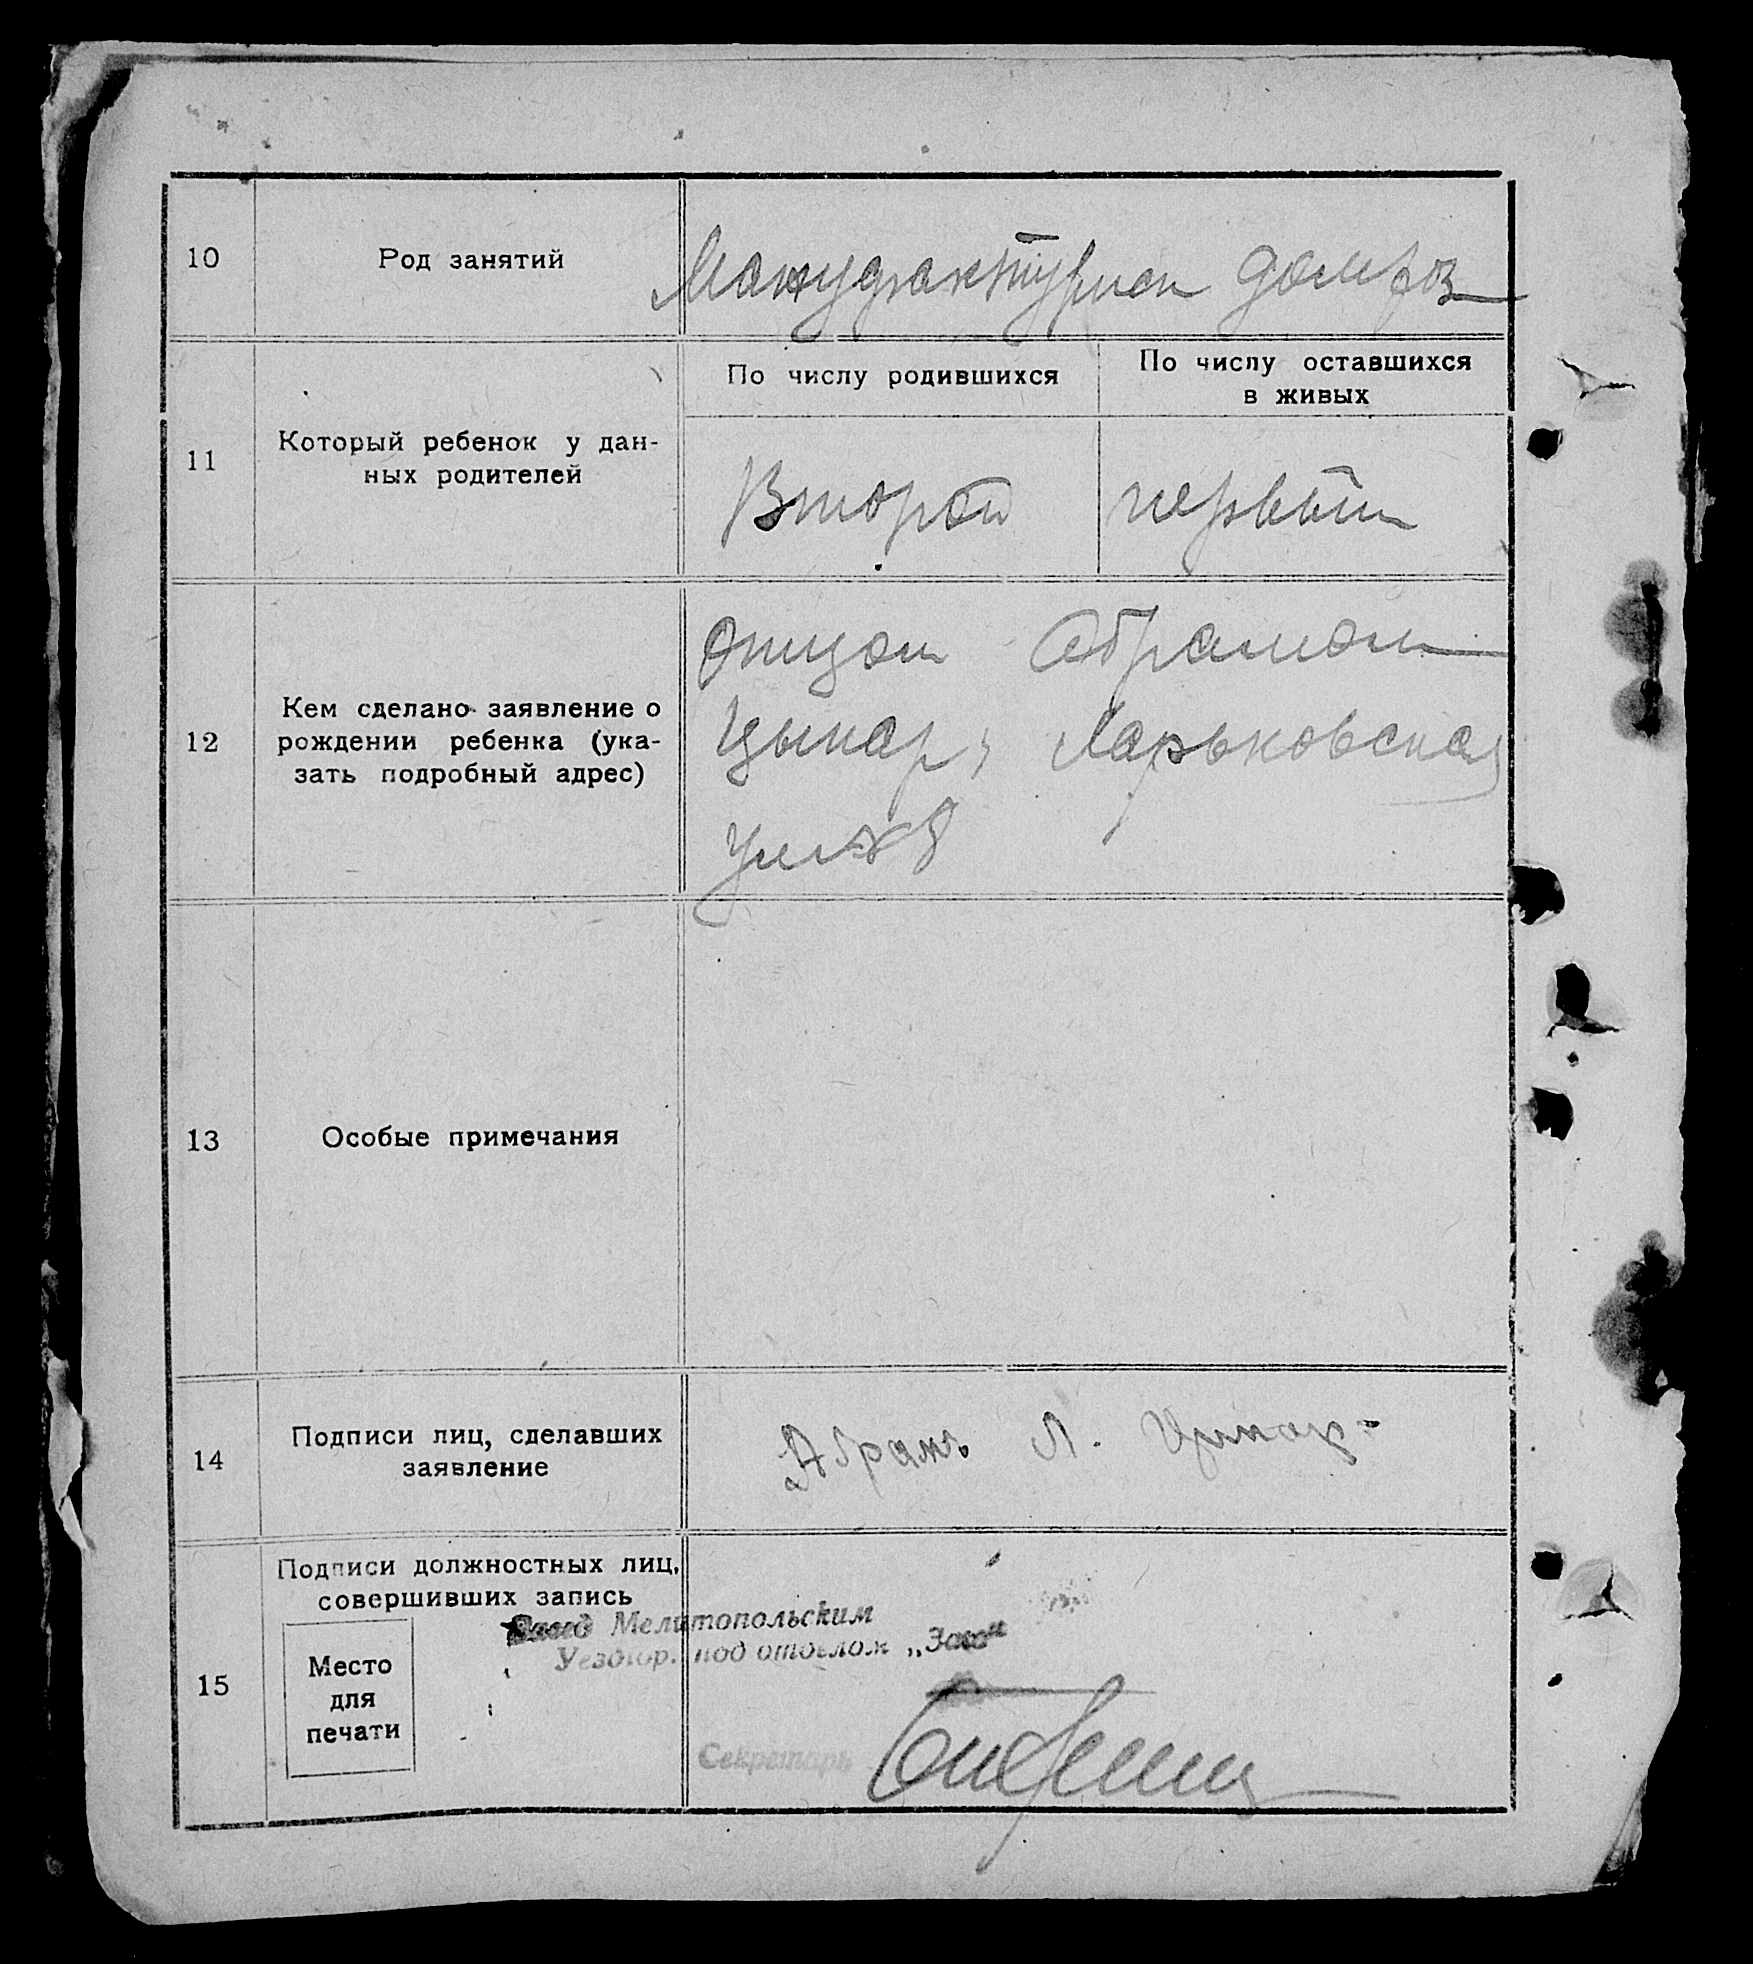 10
Род занятий
Мануфактурист домхоз
11
Который ребенок у дан-
ных родителей
По числу родившихся
По числу оставшихся
в живых
Второй
первый
12
Кем сделано заявление о
рождении ребенка (ука-
зать подробный адрес)
Отцом Абрамом
Цыпар, Харьковская
ул
13
Особые примечания
14
Подписи лиц, сделавших
заявление
Абрамъ Л.
15
Подписи должностных лиц,
совершивших запись
Место
для
печати
Завед Мелитопольским
Уездгор. под отделом „Загс"
Секретарь